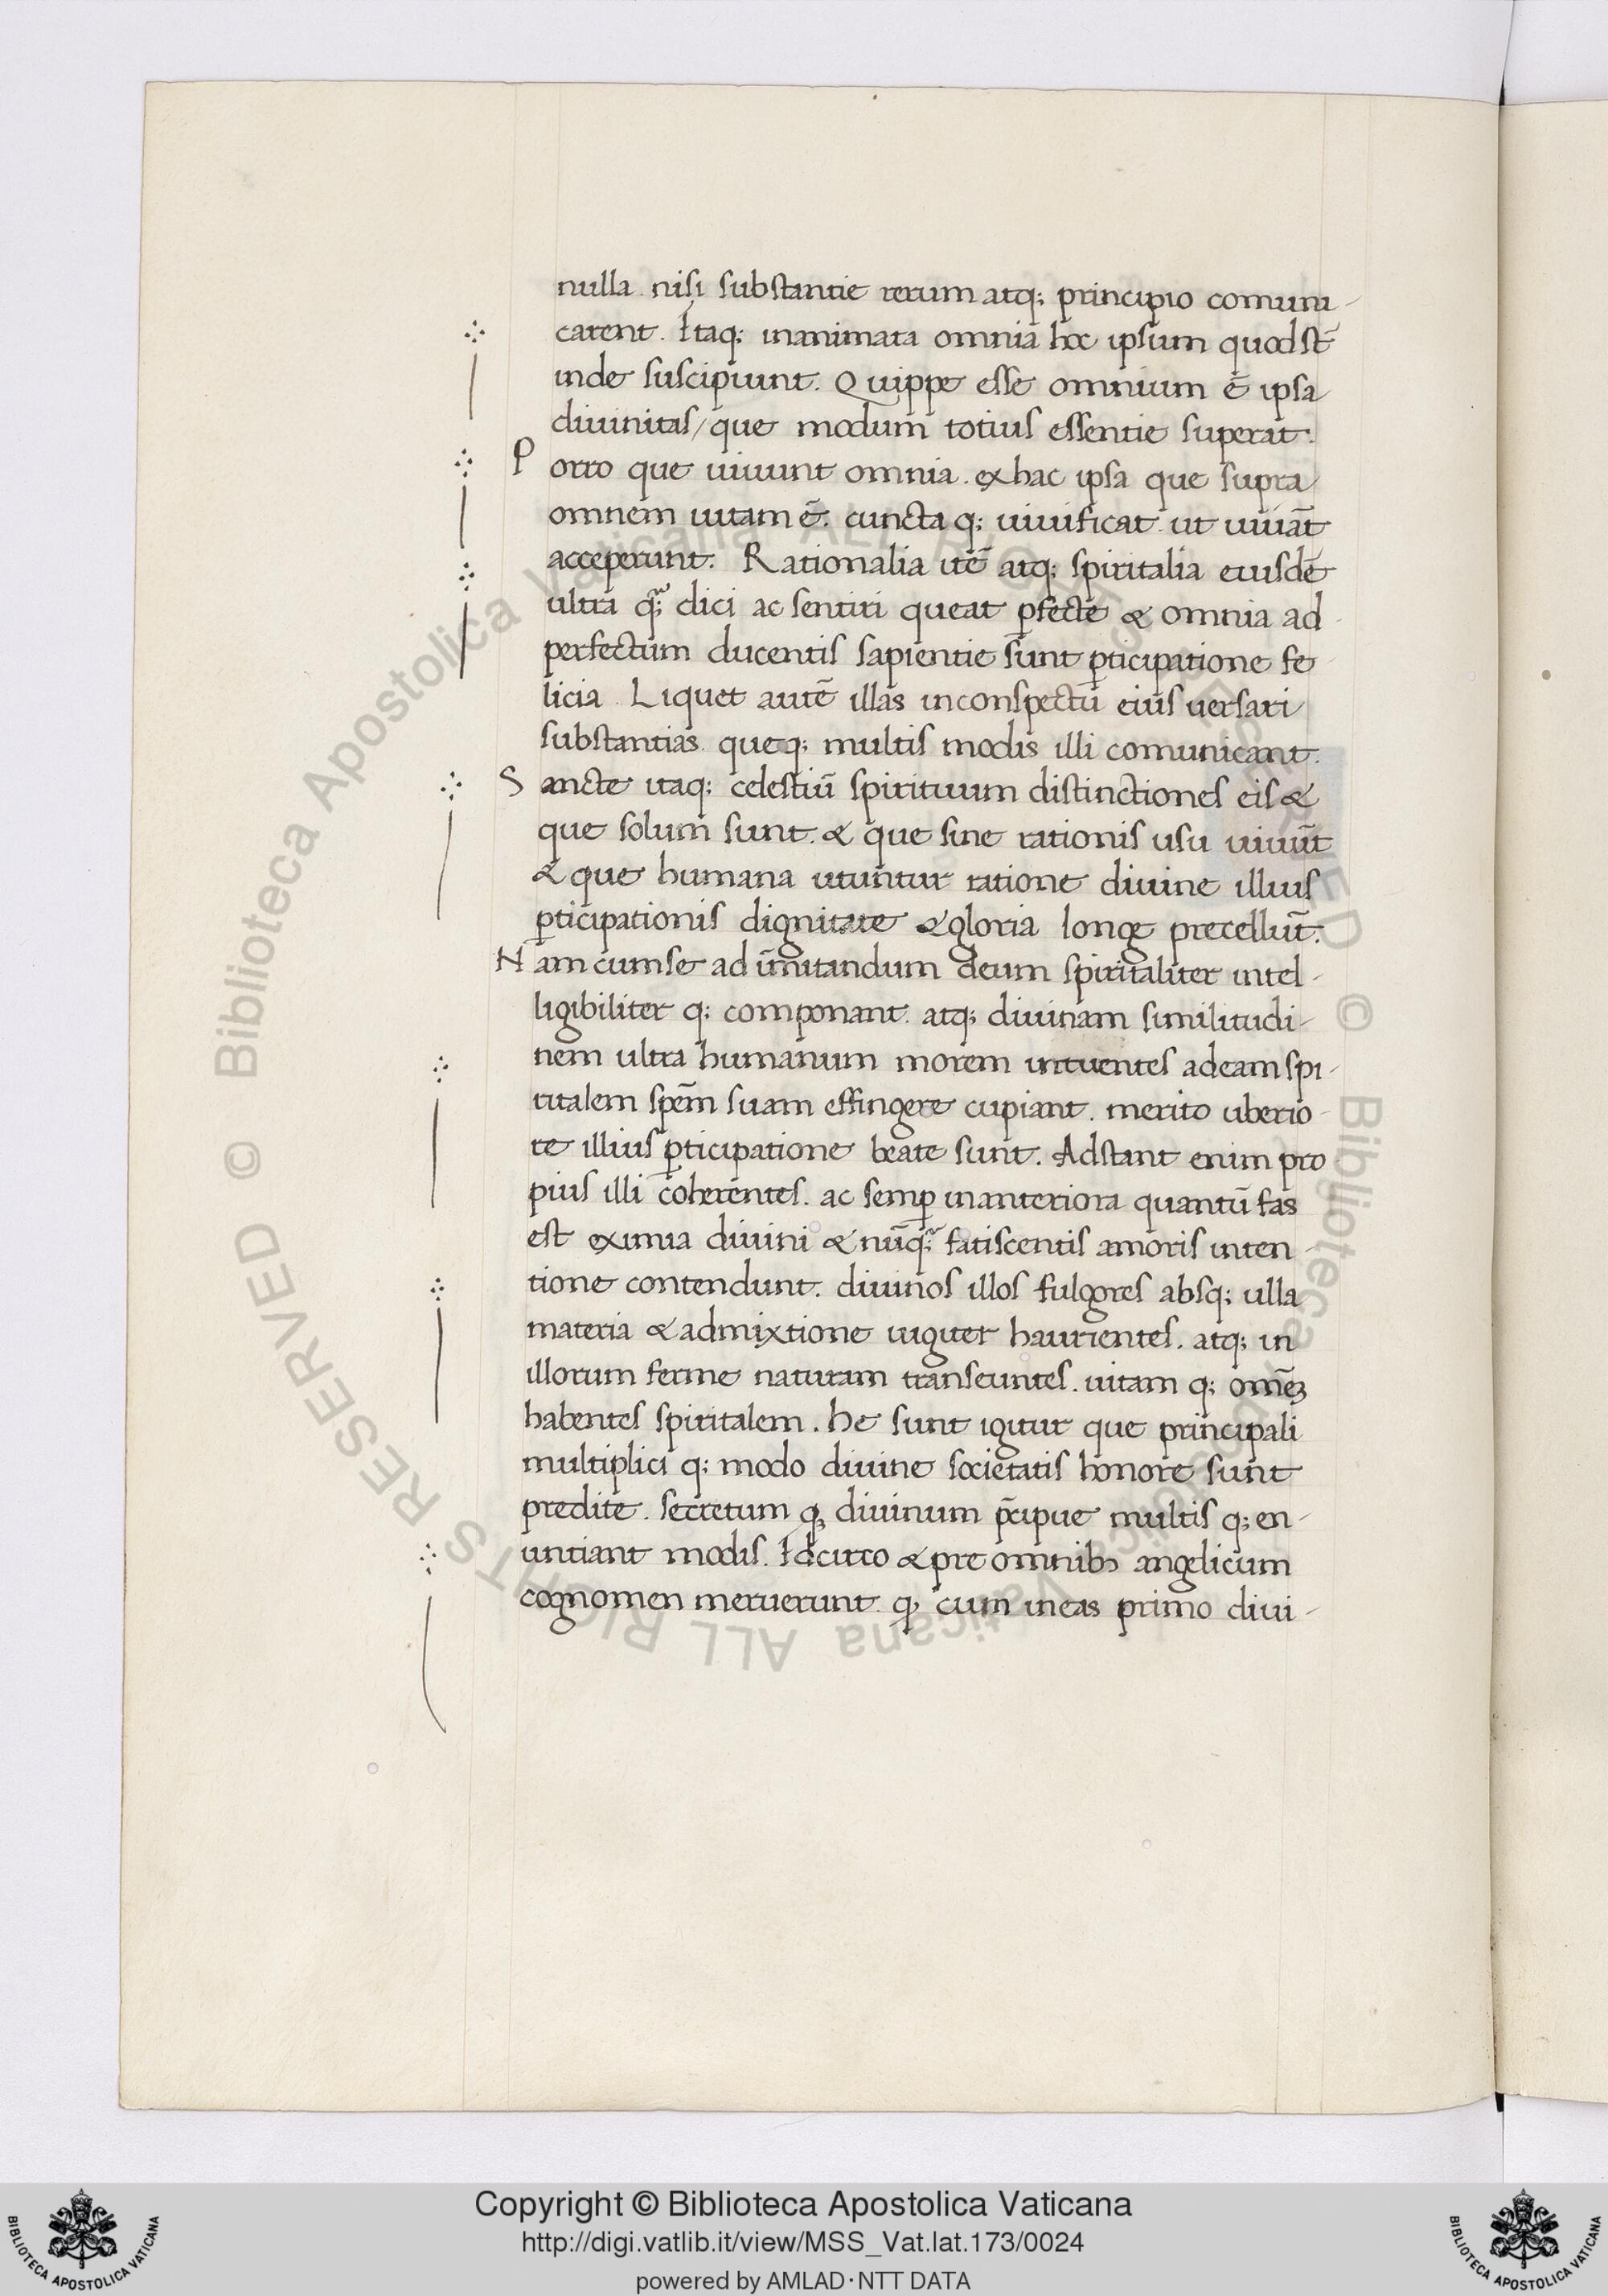 nulla. nisi substantie rerum atq; principio comuni-
carent. Itaq; inanimata omnia hoc ipsum quod st̄
inde suscipiunt. Quippe esse omnium ē ipsa
diuinitas/ que modum totius essentie superat.
Porro que uiuunt omnia. ex hac ipsa que supra
omnem uitam ē. cuncta q; uiuificat. ut uiuāt
acceperunt. Rationalia itē atq; spiritalia eiusdē
ultra q; dici ac sentiri queat ꝑfecte & omnia ad
perfectum ducentis sapientie sunt ꝑticipatione fe
licia. Liquet autē illas in conspectū eius uersari
substantias. queq; multis modis illi comunicant.
Sancte itaq; celestiū spirituum distinctiones eis &
que solum sunt. & que sine rationis usu uiuūt
& que humana utuntur ratione diuine illius
ꝑticipationis dignitate & gloria longe precellūt.
Nam cum se ad īmitandum deum spiritaliter intel-
ligibiliter q; componant. atq; diuinam similitudi-
nem ultra humanum morem intuentes ad eam spi-
ritalem spēm suam effingere cupiant. merito uberio-
re illius ꝑticipatione beate sunt. Adstant enim pro
pius illi coherentes. ac semꝑ in anteriora quantū fas
est eximia diuini & nūq; fatiscentis amoris inten-
tione contendunt. diuinos illos fulgores absq; ulla
materia & admixtione iugiter haurientes. atq; in
illorum ferme naturam transeuntes. uitam q; omēꝫ
habentes spiritalem. he sunt igitur que principali
multiplici q; modo diuine societatis honore sunt
predite. secretum qꝫ diuinum p̄cipue multis q; en-
untiant modis. Idcirco & pre omnibꝫ angelicum
cognomen meruerunt. qꝫ cum in eas primo diui-
© Biblioteca Apostolica Vaticana ALL RIGHTS RESERVED © Biblioteca Apostolica Vaticana ALL RIGHTS RESERVED
Copyright © Biblioteca Apostolica Vaticana
http://digi.vatlib.it/view/MSS_Vat.lat.173/0024
powered by AMLAD·NTT DATA
BIBLIOTECA APOSTOLICA VATICANA
BIBLIOTECA APOSTOLICA VATICANA